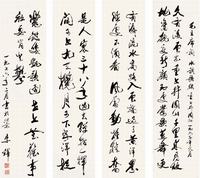 毛主席词 水调歌头 重上井冈山 一九六五年五月
久有凌云志重上井冈山千里来寻
故地旧貌变新颜到处莺歌燕舞更有
潺潺流水高路入云端过了黄洋界
险处不须看风雷动旌旗奋
是人寰三十八年过去弹指一挥
间可上九天揽月可下五洋捉
鳖谈笑凯歌还世上无难事
只要肯登攀
一九七六年二月书